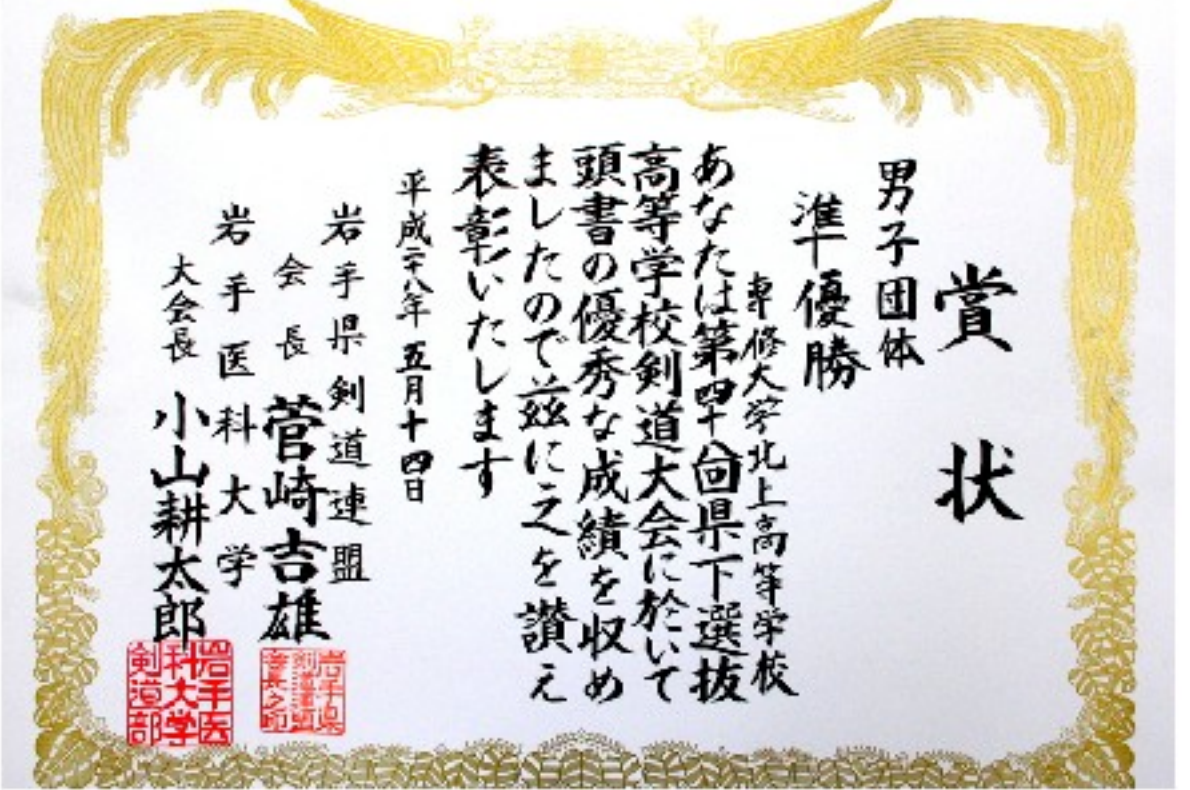 賞状
男子団体
準優勝
専修大学北上高等学校
あなたは第四十八回県下選抜
高等学校剣道大会に於いて
頭書の優秀な成績を収め
ましたので茲に之を讃え
表彰いたします
平成二十八年五月十四日
岩手県剣道連盟
会長 菅崎吉雄
岩手医科大学
大会長 小山耕太郎
岩手県
剣道連盟
会長之印
岩手医
科大学
剣道部